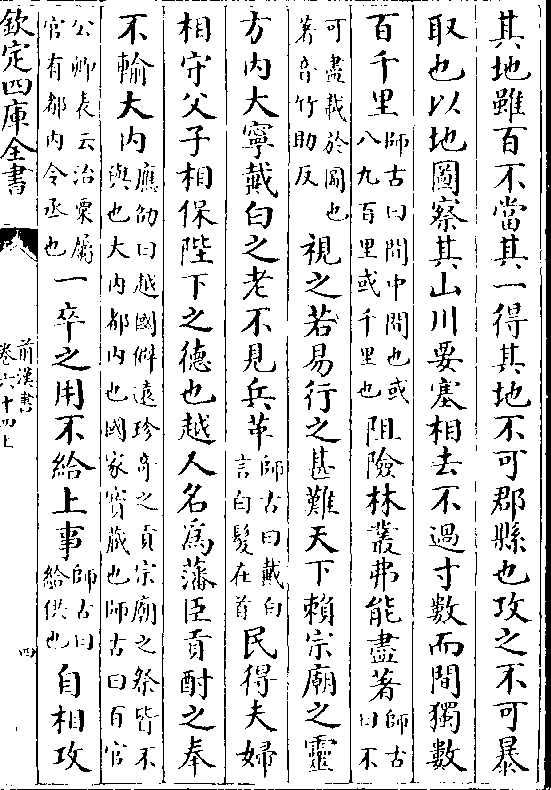 其地雖百不當其一得其地不可郡縣也攻之不可暴
取也以地圖察其山川要塞相去不過寸數而間獨數
百千里師古曰間中間也或八九百里或千里也阻險林叢弗能盡著師古曰不
可盡載於圖也著音竹助反視之若易行之甚難天下賴宗廟之靈
方内大寧戴白之老不見兵革師古曰戴白言白髮在首民得夫婦
相守父子相保陛下之德也越人名為藩臣貢酎之奉
不輸大内應劭曰越國僻遠珍奇之貢宗廟之祭皆不與也大内都内也國家寳藏也師古曰百官
公卿表云治粟屬官有都内令丞也一卒之用不給上事師古曰給供也自相攻
欽定四庫全書
前漢書
卷六十四上
四